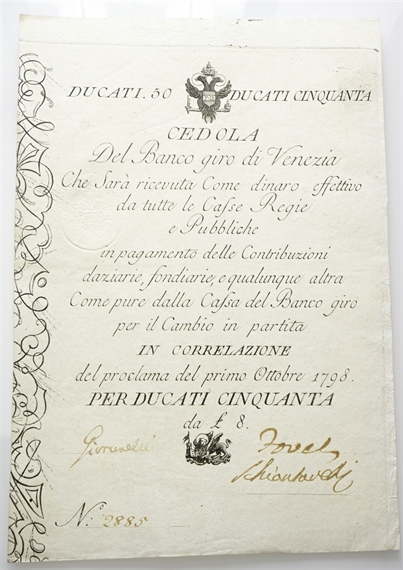 DUCATI. 50 DUCATI CINQUANTA
CEDOLA
Del Banco giro di Venezia
Che Sarà ricevuta Come dinaro effettivo
da tutte le Casse Regie
e Pubbliche
in pagamento delle Contribuzioni
daziarie, fondiarie, e qualunque altra
Come pure dalla Cassa del Banco giro
per il Cambio in partita
IN CORRELAZIONE
del proclama del primo Ottobre 1798.
PER DUCATI CINQUANTA
da £ 8.
N.º 2885